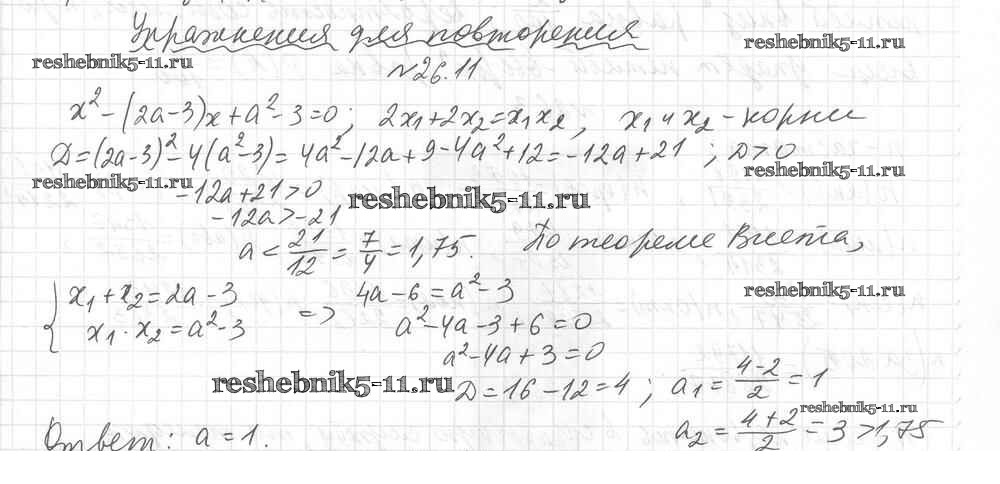 Упражнения для повторения
reshebnik5-11.ru
reshebnik5-11.ru
№26.11
x² - (2a-3)x + a² - 3 = 0; 2x₁ + 2x₂ = x₁x₂, x₁ и x₂ - корни
D = (2a-3)² - 4(a² - 3) = 4a² - 12a + 9 - 4a² + 12 = -12a + 21; D > 0
reshebnik5-11.ru
reshebnik5-11.ru
-12a + 21 > 0,
reshebnik5-11.ru
-12a > -21
a < 21/12 = 7/4 = 1,75. По теореме Виета,
{ x₁ + x₂ = 2a - 3
x₁ · x₂ = a² - 3 => 4a - 6 = a² - 3
reshebnik5-11.ru
a² - 4a - 3 + 6 = 0
a² - 4a + 3 = 0
reshebnik5-11.ru
D = 16 - 12 = 4; a₁ = (4-2)/2 = 1
reshebnik5-11.ru
a₂ = (4+2)/2 = 3 > 1,75
Ответ: a = 1.